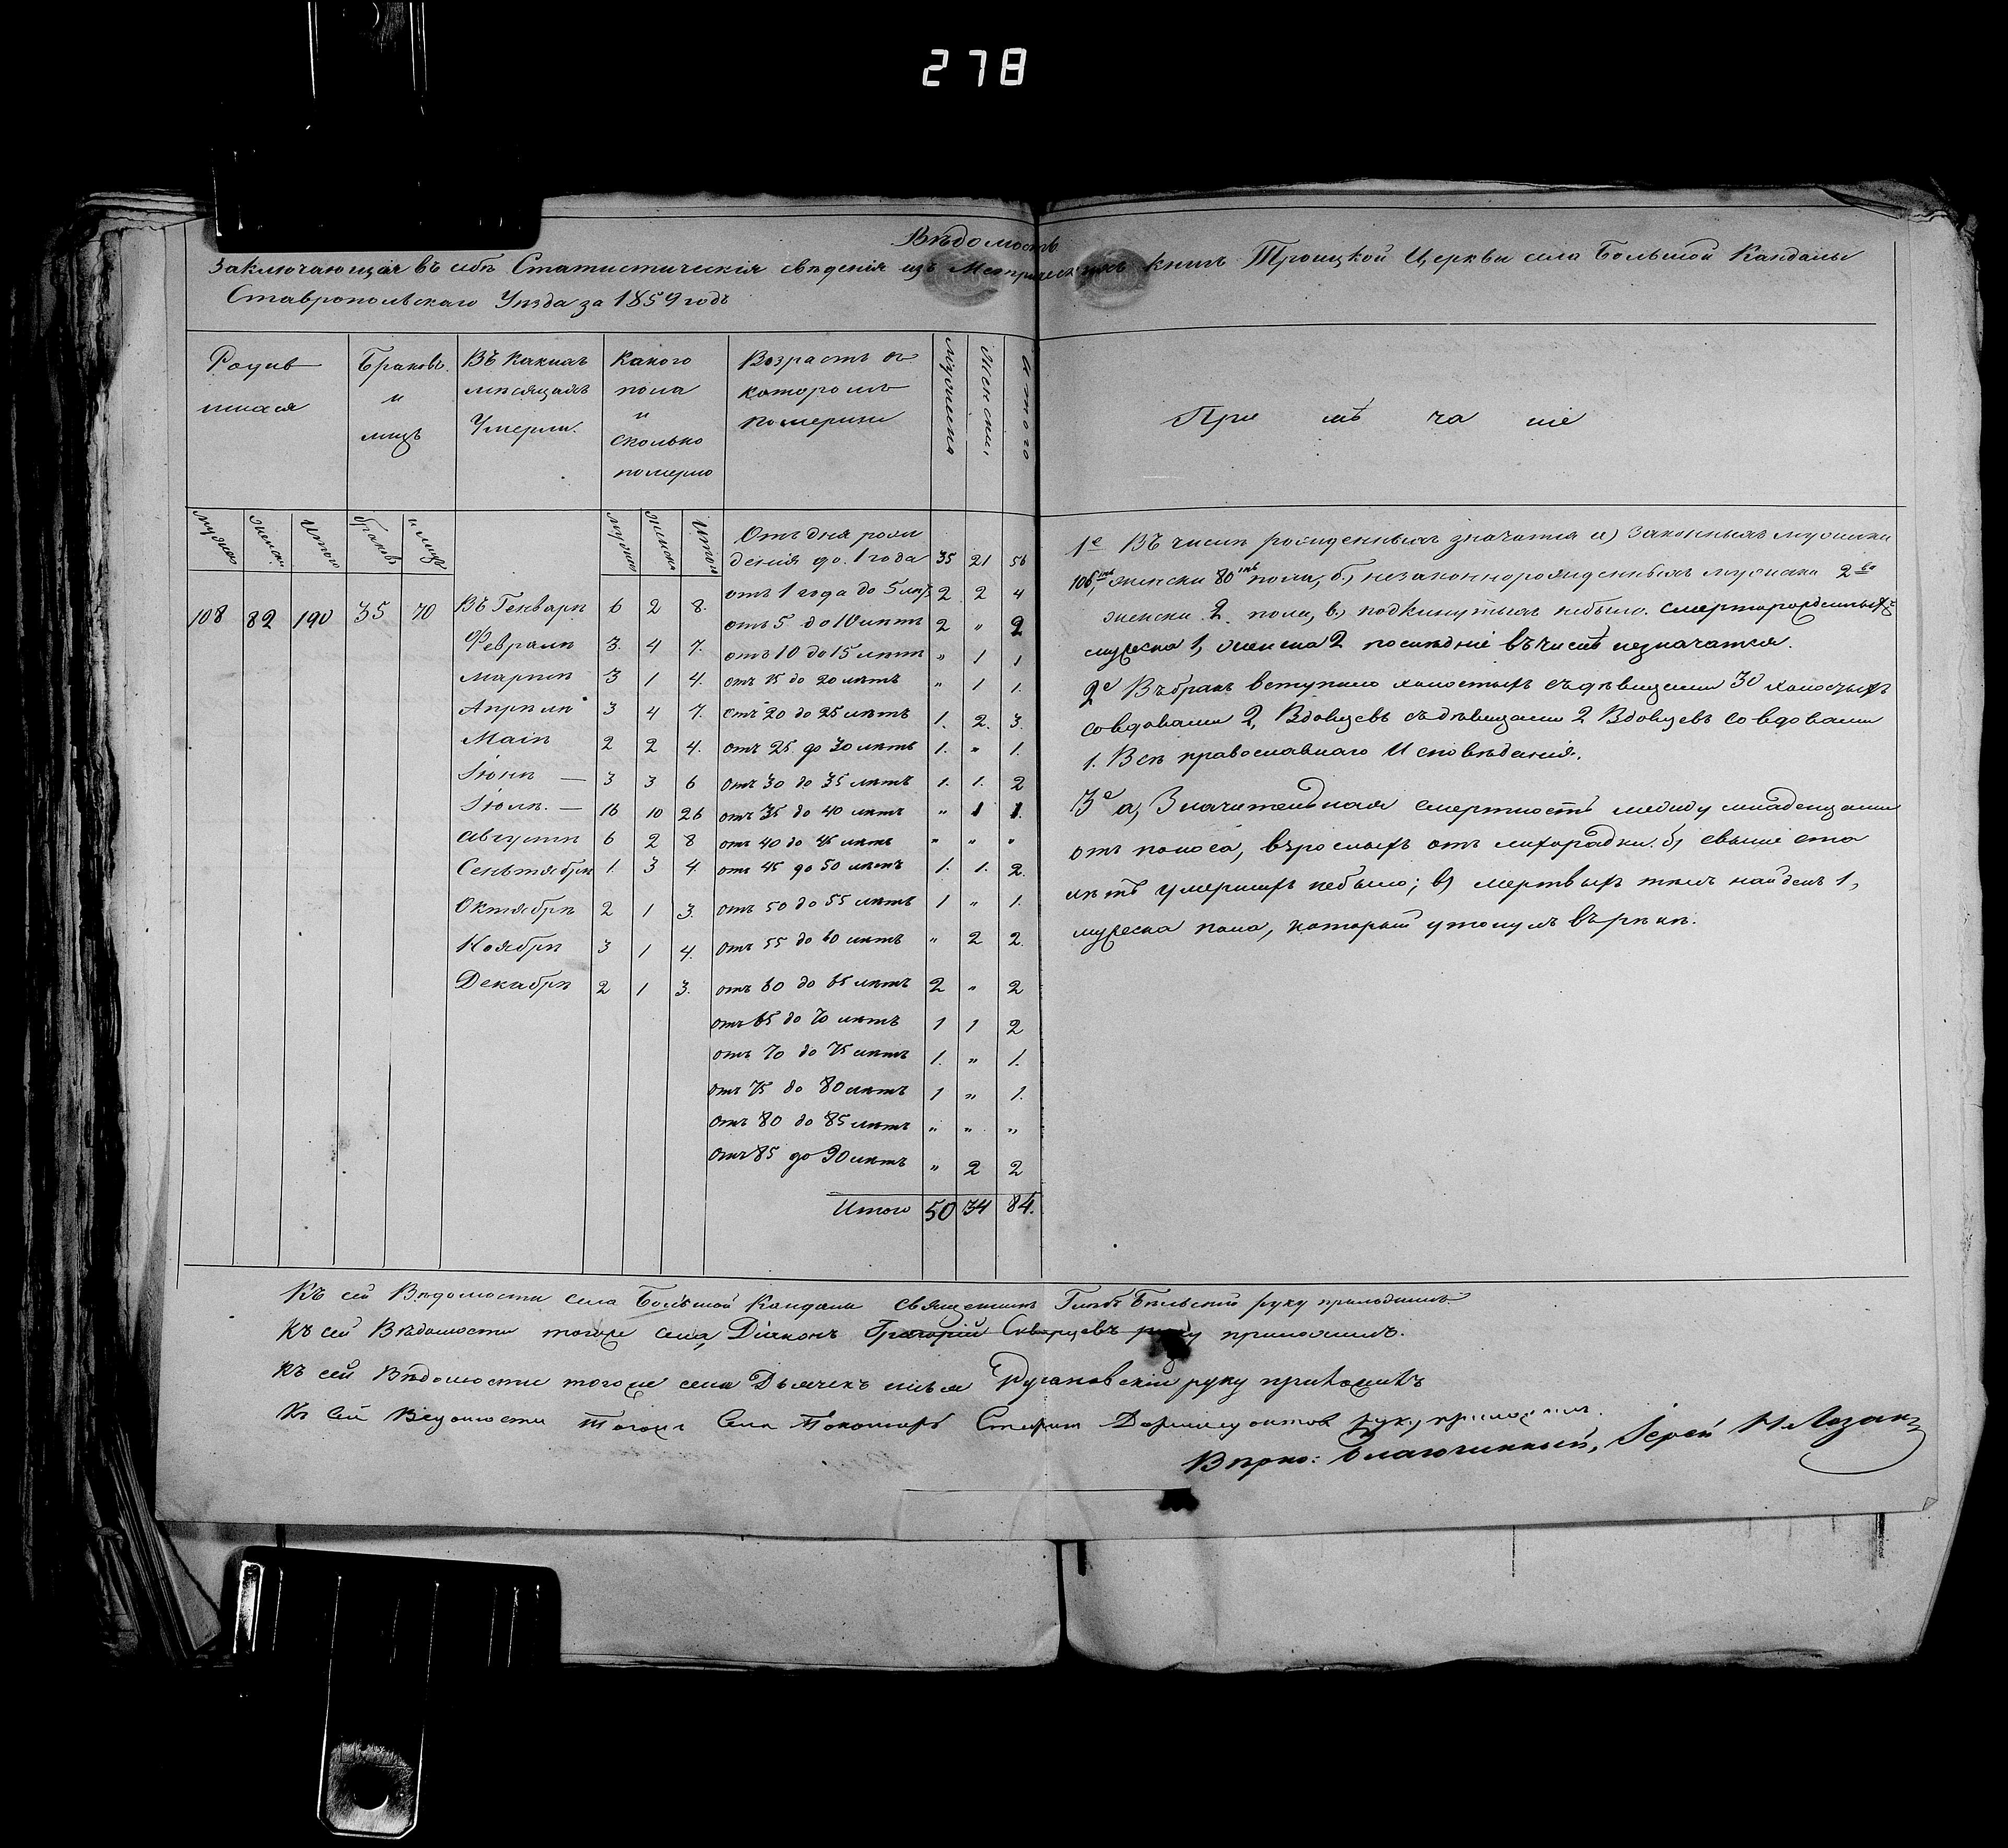 278
Вѣдомость
Заключающая въ себѣ Статистическія свѣденія изъ Метрическихъ книгъ Троицкой Церкви села Большой Кандалы
Ставропольскаго Уѣзда за 1859 годъ
Родив
шихся
Браковъ
и
лицъ
Въ какихъ
мѣсяцахъ
Умерли.
Какого
пола
и
сколько
померло
Возрастъ въ
которомъ
померли
Мужеска
Женски,
Итого
При мѣ ча ніе
мужеск женск. Итого браковъ и лицъ мужеск женск Итого
Отъ дня рож
денія до 1 года 35 21 56
108 82 190 35 70
Въ Генварѣ 6 2 8. отъ 1 года до 5 лѣтъ 2 2 4
Февралѣ 3. 4 7. отъ 5 до 10 лѣтъ 2 " 2
мартѣ 3 1 4. отъ 10 до 15 лѣтъ " 1 1
Апрѣлѣ 3 4 7. отъ 15 до 20 лѣтъ " 1 1.
Маіѣ 2 2 4. отъ 20 до 25 лѣтъ 1. 2. 3.
Іюнѣ — 3 3 6 отъ 25 до 30 лѣтъ 1. " 1.
Іюлѣ. — 16 10 26 отъ 30 до 35 лѣтъ 1. 1. 2
августѣ 6 2 8 отъ 35 до 40 лѣтъ " 1 1.
Сентябрѣ 1. 3 4. отъ 40 до 45 лѣтъ " " "
Октябрѣ 2 1 3. отъ 45 до 50 лѣтъ 1. 1. 2.
Ноябрѣ 3 1 4. отъ 50 до 55 лѣтъ 1 " 1.
Декабрѣ 2 1 3. отъ 55 до 60 лѣтъ " 2 2.
отъ 60 до 65 лѣтъ 2 " 2
отъ 65 до 70 лѣтъ 1 1 2
отъ 70 до 75 лѣтъ 1. " 1.
отъ 75 до 80 лѣтъ 1 " 1.
отъ 80 до 85 лѣтъ " " "
отъ 85 до 90 лѣтъ " 2 2
Итого 50 34 84.
1е Въ числѣ рожденныхъ значатся а) законныхъ мужески
106, женски 80 пола, б) незаконнорожденныхъ мужска 2
женски 2. пола, в) подкинутыхъ небыло. смерторожденныхъ
мужеска 1, женска 2 послѣдніе въ числѣ незначатся.
2е Въ бракъ вступило холостыхъ съ дѣвицами 30 холостыхъ
со вдовами 2, Вдовцевъ съ дѣвицами 2 Вдовцевъ со вдовами
1. Всѣ православнаго Исповѣданія.
3е а) Значительная смертность между младенцами
отъ поноса, взрослыхъ отъ лихорадки. б) свыше ста
лѣтъ умершихъ небыло; в) мертвыхъ тѣлъ найдено 1,
мужеска пола, который утонулъ въ рѣкѣ.
Къ сей Вѣдомости села Большой Кандалы священникъ Глѣбъ Бѣльскій руку приложилъ.
Къ сей Вѣдомости тогоже села, Діяконъ Григорій Скворцевъ руку приложилъ.
Къ сей Вѣдомости тогоже села Дьячекъ Русановскій руку приложилъ
Къ сей Ведомости тогожъ села Пономарь руку приложилъ.
Вѣрно: Благочинный, Іерей